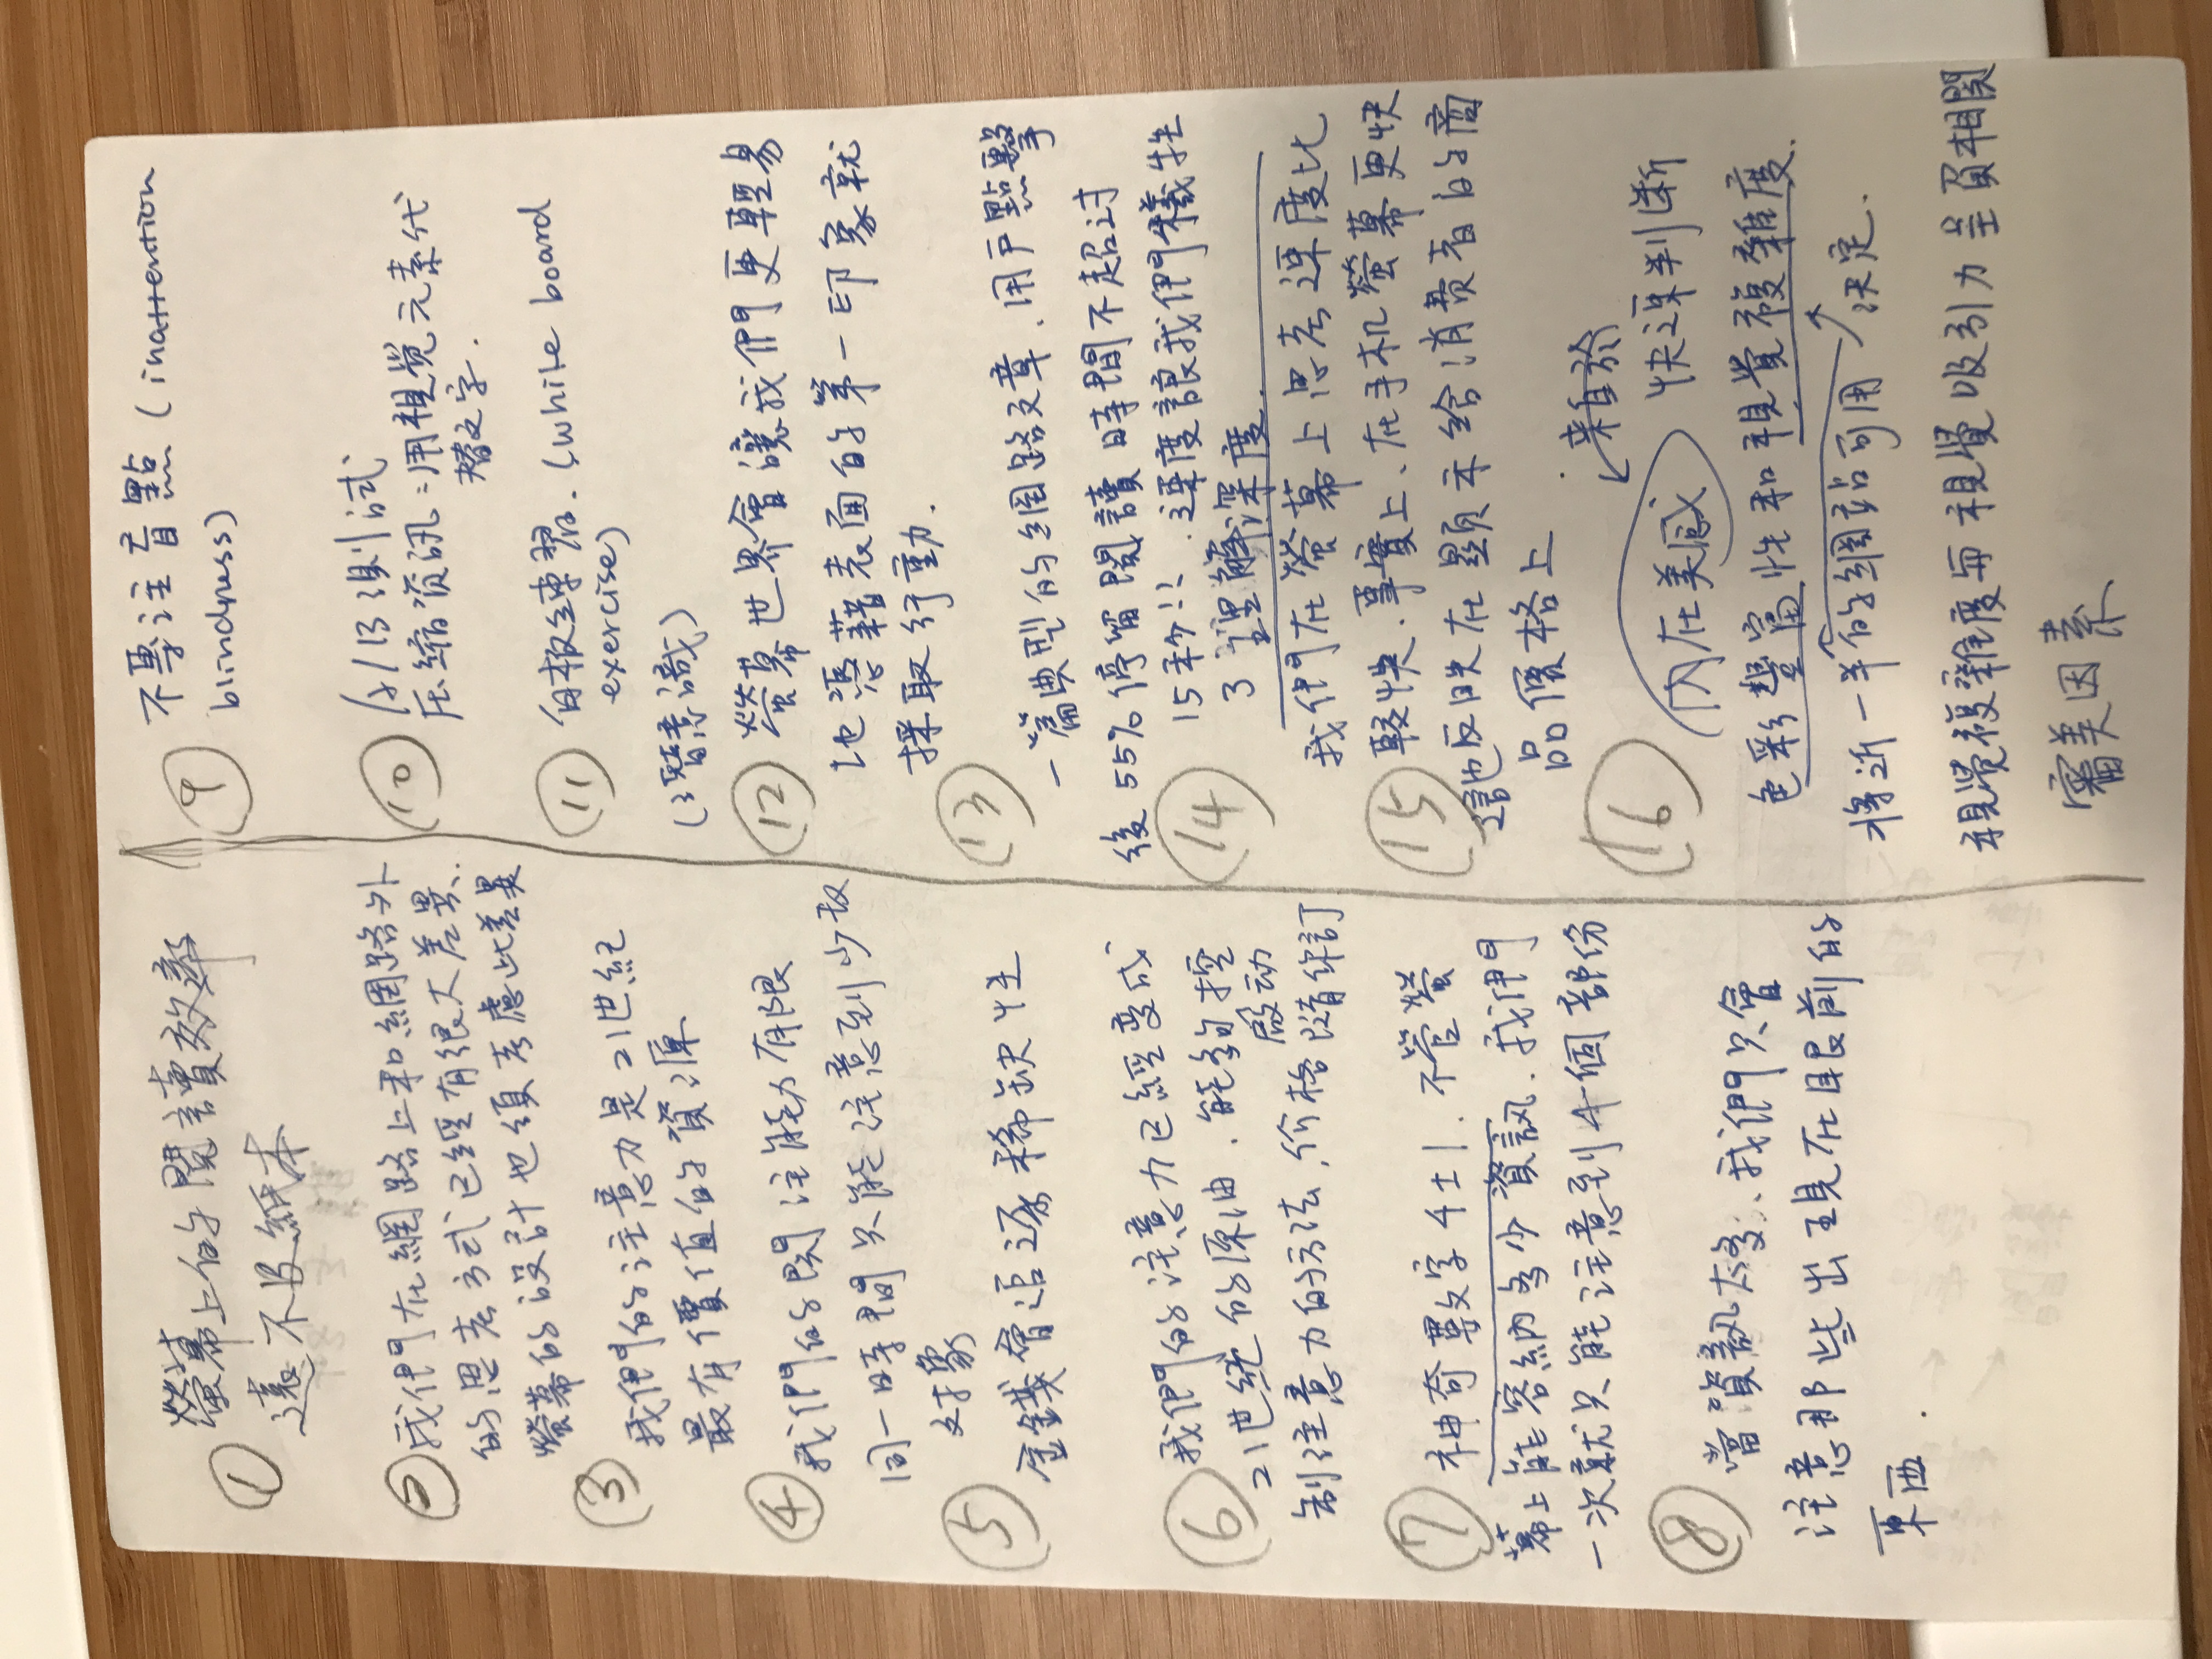 ① 螢幕上的閱讀效率
遠不及紙本
② 我們在網路上和網路外
的思考方式已經有很大差異.
螢幕的設計也須考慮此差異
③ 我們的注意力是21世紀
最有價值的資源
④ 我們的関注能力有限
同一時間只能注意到少数
对象
⑤ 金錢會追逐稀缺性
⑥ 我們的注意力已經变成
21世紀的原油、能夠控
制注意力的方法、价格
啟动
隨你訂
⑦ 神奇數字4±1、不管螢
幕上能容納多少資訊、我們
一次就只能注意到4個部份
⑧ 當資訊太多、我們只會
注意那些出現在眼前的
東西.
⑨ 不專注盲點 (inattention
blindness)
⑩ A/B測試
压缩资訊:用視覚元素代
替文字.
⑪ 白板練習. (white board
exercise)
(潛意識)
⑫ 螢幕世界會讓我們更輕易
地憑藉表面的第一印象就
採取行動.
⑬ 一篇典型的網路文章、用戶點擊
後55%停留閱讀時間不超过
15秒!!、速度讓我們犧牲
⑭ 了理解深度.
我們在螢幕上思考速度比
⑮ 較快、事實上、在手机螢幕更快
這也反映在顯示給消費者的商
品價格上
⑯ 內在美感 來自於
快速判斷
色彩豐富性和視覺複雜度.
將近一半的網站可用 決定.
視覺複雜度与視覺吸引力呈負相関
審美因素